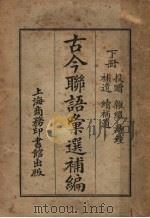 下冊
投贈 雜綴 諧謔
補遺 續補遺
古今聯語彙選補編
上海商務印書館出版